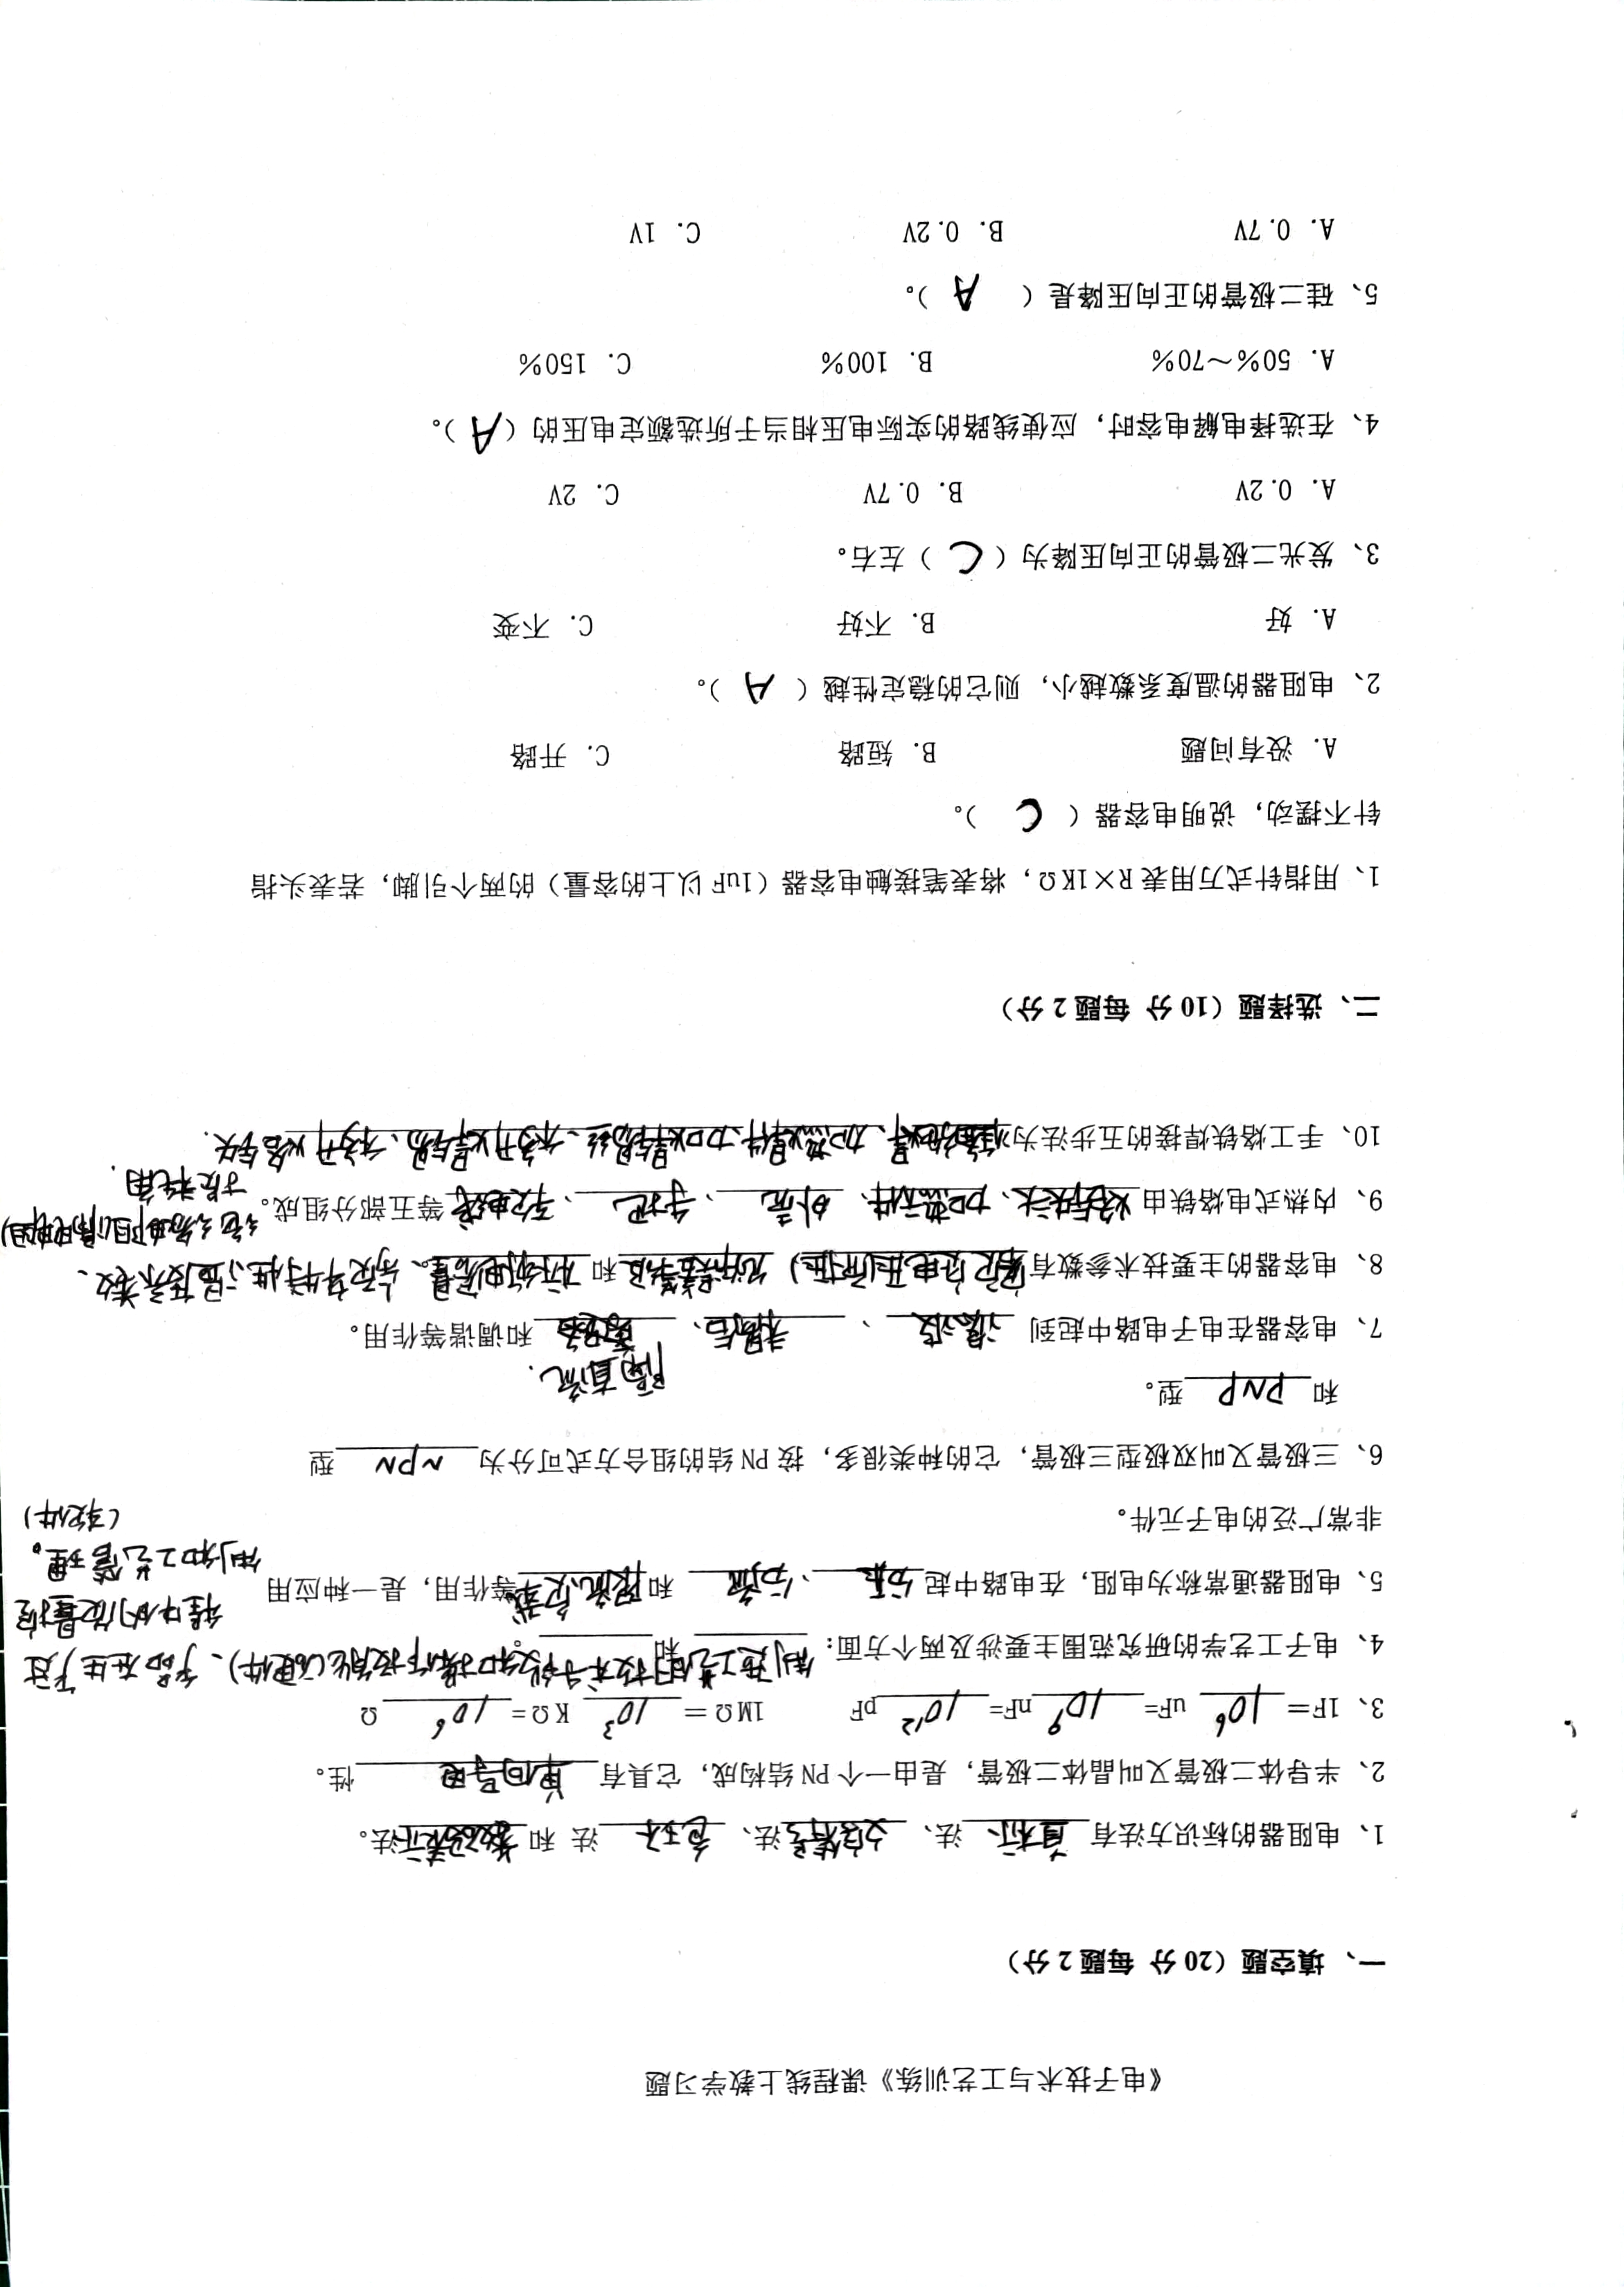 《电子技术与工艺训练》课程线上教学习题
一、填空题（20 分 每题 2 分）
1、电阻器的标识方法有 直标 法、文字符号 法、色环 法 和 数码表示 法。
2、半导体二极管又叫晶体二极管，是由一个 PN 结构成，它具有 单向导电 性。
3、1F= 10⁶ uF= 10⁹ nF= 10¹² pF 1MΩ = 10³ KΩ = 10⁶ Ω
4、电子工艺学的研究范围主要涉及两个方面： 和 。
制造工艺的技术手段和操作技能（硬件）、产品在生产过
程中的质量控
制和工艺管理。
（软件）
5、电阻器通常称为电阻，在电路中起 分压 、 分流 和 限流负载 等作用，是一种应用
非常广泛的电子元件。
6、三极管又叫双极型三极管，它的种类很多，按 PN 结的组合方式可分为 NPN 型
和 PNP 型。
隔直流.
7、电容器在电子电路中起到 滤波 、 耦合 、 旁路 和调谐等作用。
8、电容器的主要技术参数有 额定电压（耐压） 允许误差 和 标称电容量 。等效串特性、温度系数、
绝缘电阻（漏电阻）
损耗角.
9、内热式电烙铁由 烙铁头 、加热体 、外壳 、手把 、软电线 等五部分组成。
10、手工烙铁焊接的五步法为 准备施焊、加热焊件、加焊锡丝、移开焊锡、移开烙铁.
二、选择题（10 分 每题 2 分）
1、用指针式万用表 R×1KΩ，将表笔接触电容器（1uF 以上的容量）的两个引脚，若表头指
针不摆动，说明电容器（ C ）。
A. 没有问题 B. 短路 C. 开路
2、电阻器的温度系数越小，则它的稳定性越（ A ）。
A. 好 B. 不好 C. 不变
3、发光二极管的正向压降为（ C ）左右。
A. 0.2V B. 0.7V C. 2V
4、在选择电解电容时，应使线路的实际电压相当于所选额定电压的（ A ）。
A. 50%～70% B. 100% C. 150%
5、硅二极管的正向压降是（ A ）。
A. 0.7V B. 0.2V C. 1V